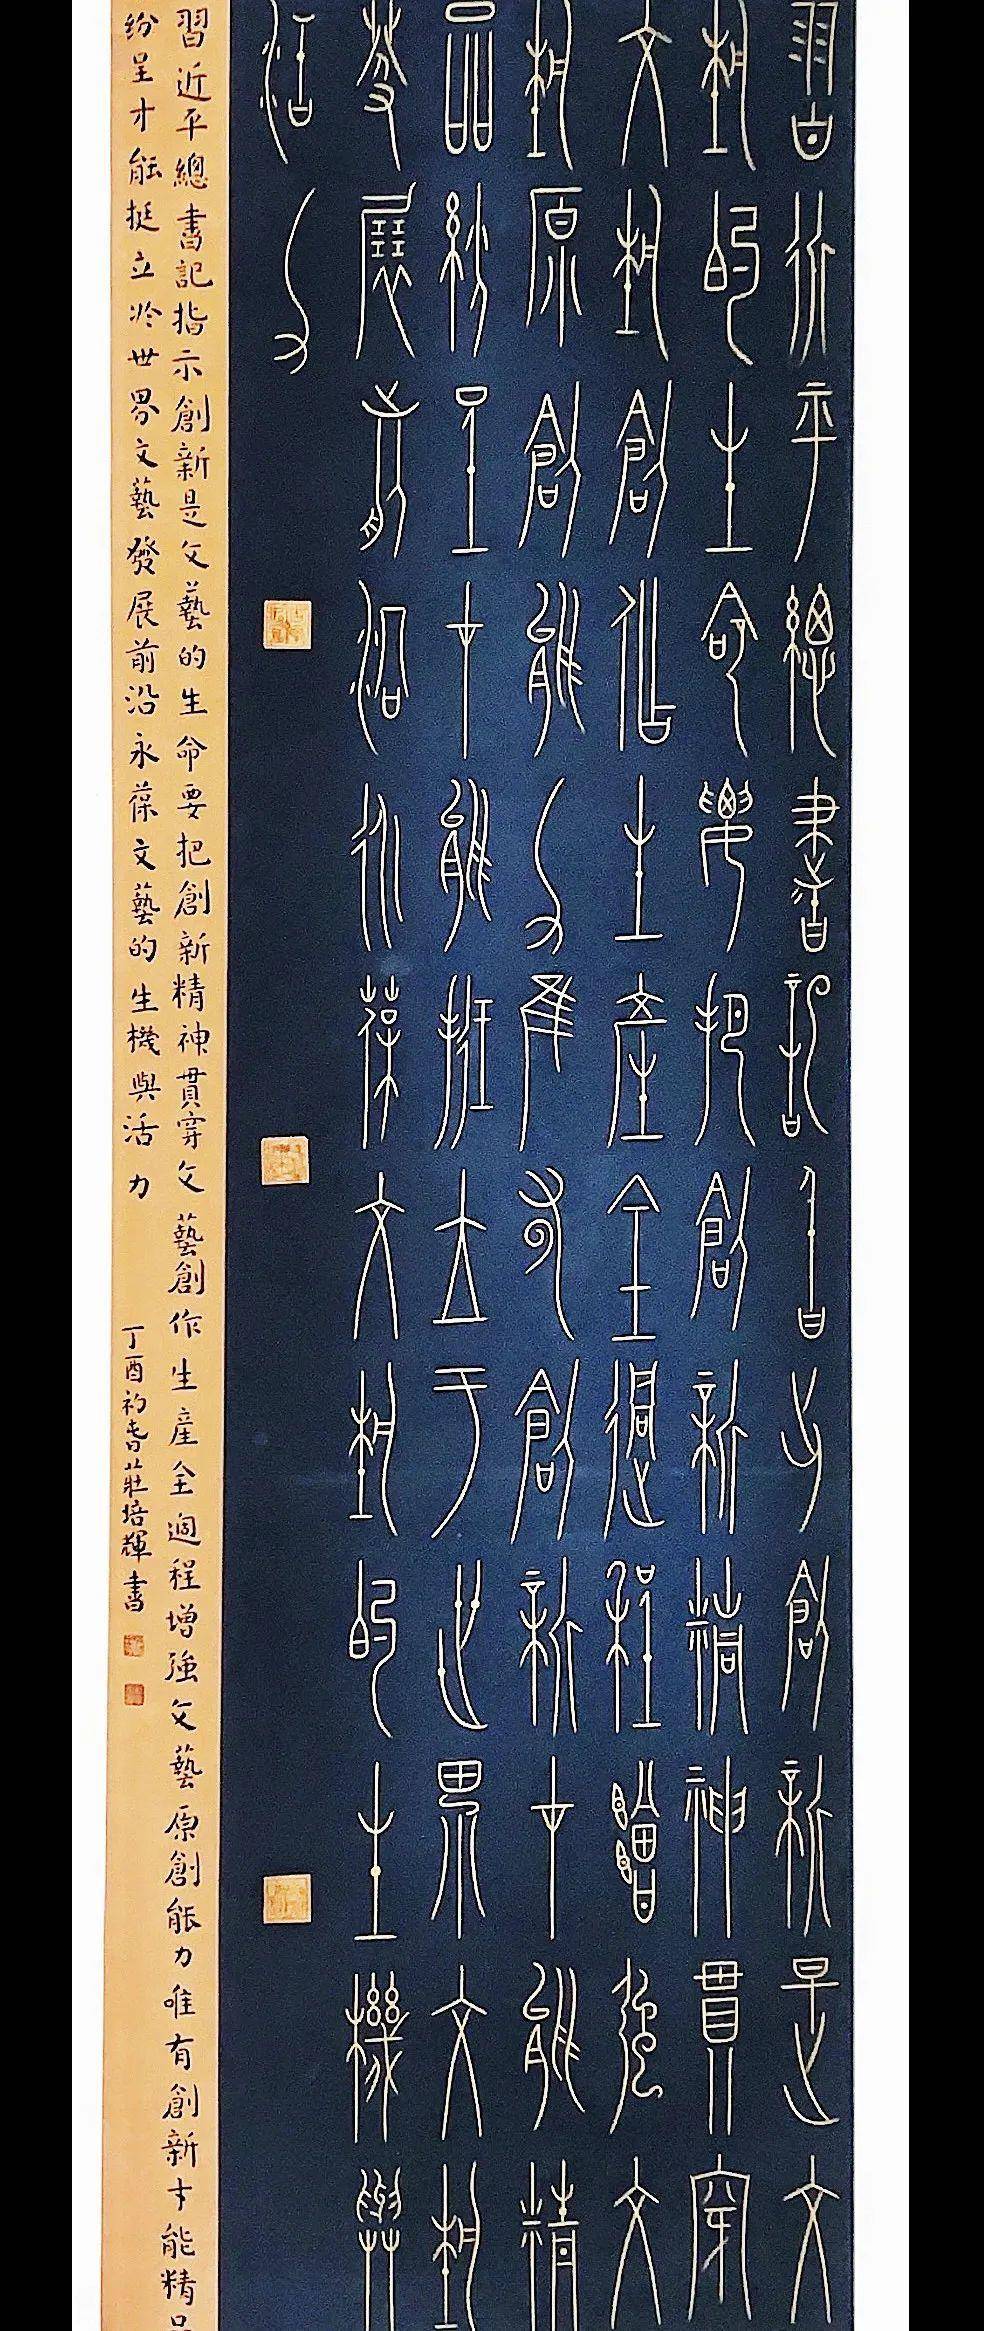 習近平總書記指示創新是文
藝的生命要把創新精神貫穿
文藝創作生產全過程增強文
藝原創能力唯有創新才能精
品紛呈才能挺立于世界文藝
發展前沿永葆文藝的生機與
活力
習近平總書記指示創新是文藝的生命要把創新精神貫穿文藝創作生產全過程增強文藝原創能力唯有創新才能精品
紛呈才能挺立於世界文藝發展前沿永葆文藝的生機與活力 丁酉初春莊培輝書